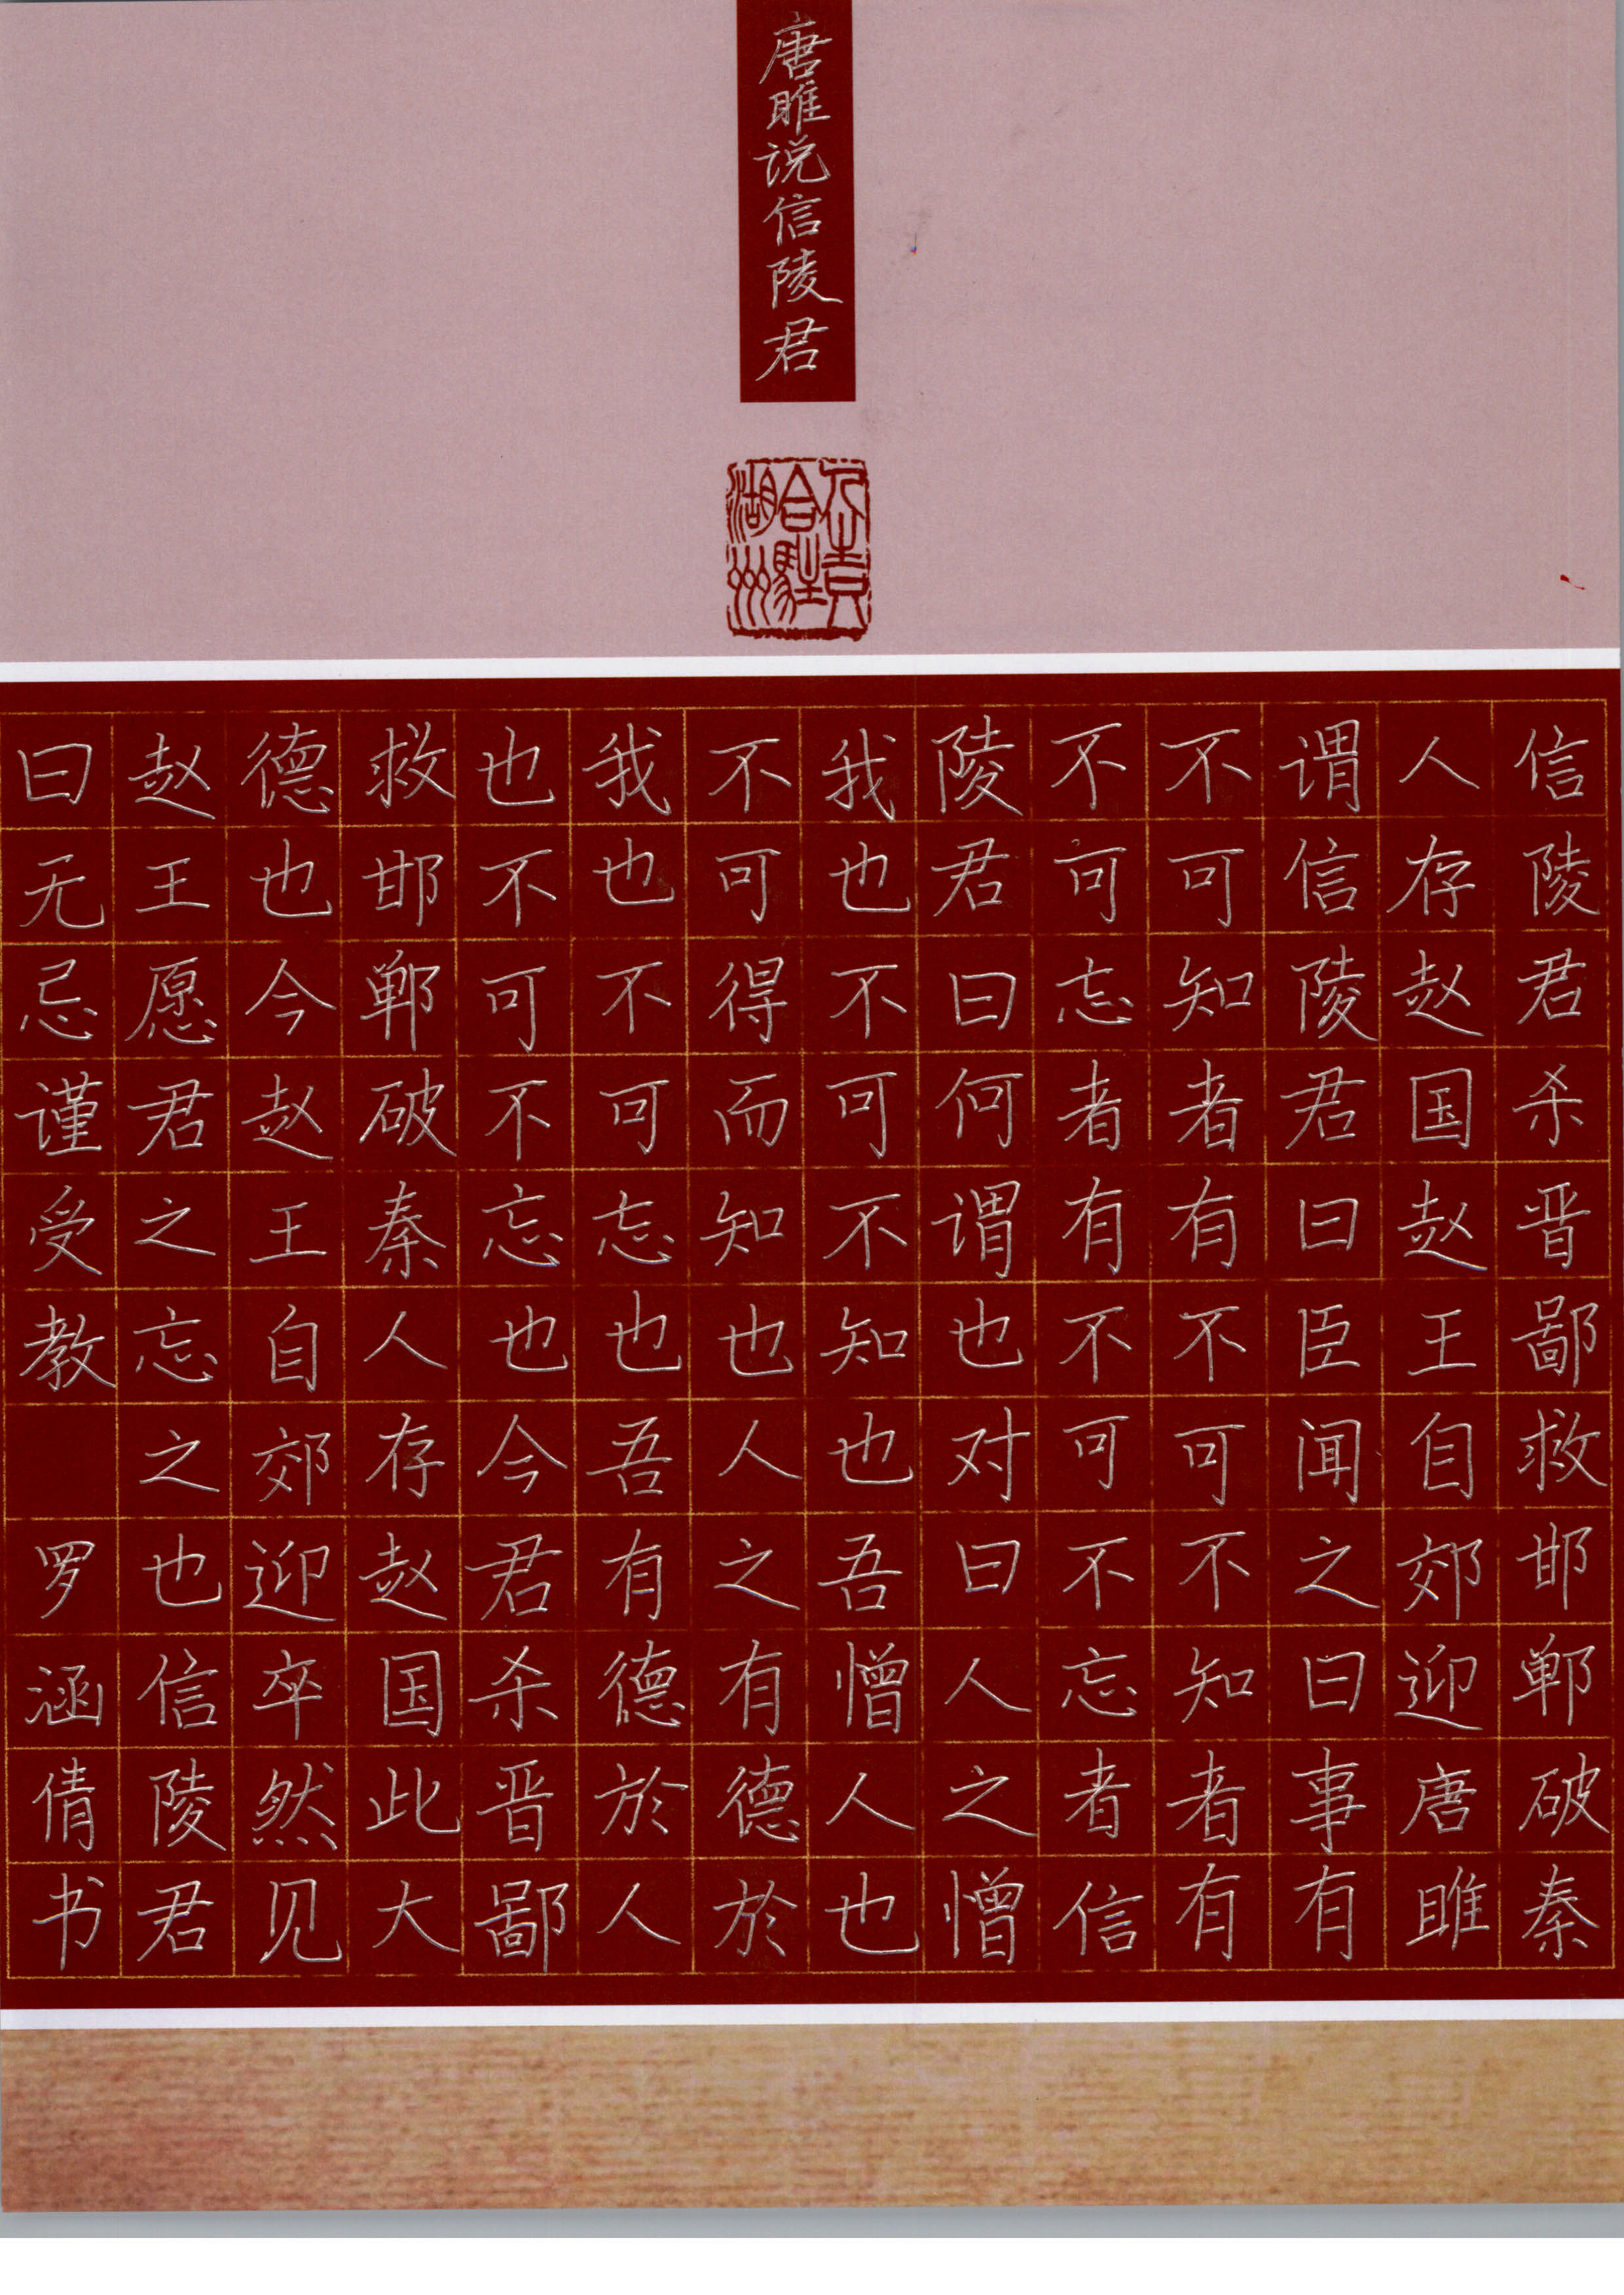 唐雎说信陵君
信陵君杀晋鄙救邯郸破秦
人存赵国赵王自郊迎唐雎
谓信陵君曰臣闻之曰事有
不可知者有不可不知者有
不可忘者有不可不忘者信
陵君曰何谓也对曰人之憎
我也不可不知也吾憎人也
不可得而知也人之有德於
我也不可忘也吾有德於人
也不可不忘也今君杀晋鄙
救邯郸破秦人存赵国此大
德也今赵王自郊迎卒然见
赵王愿君之忘之也信陵君
曰无忌谨受教 罗涵倩书